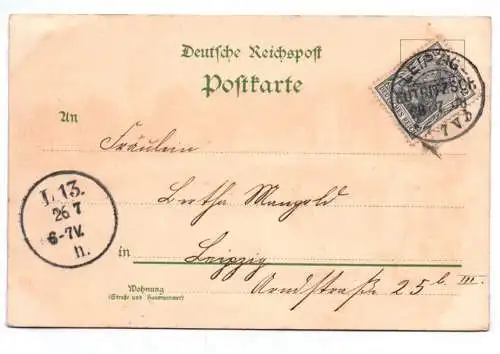 Deutsche Reichspost
Postkarte
LEIPZIG-
EUTRITZSCH
7-8V
An
Fräulein
Bertha Mangold
L 13.
26 7
6-7V.
n.
in Leipzig
Wohnung
(Straße und Hausnummer)
Arndtstraße 25 b. III.